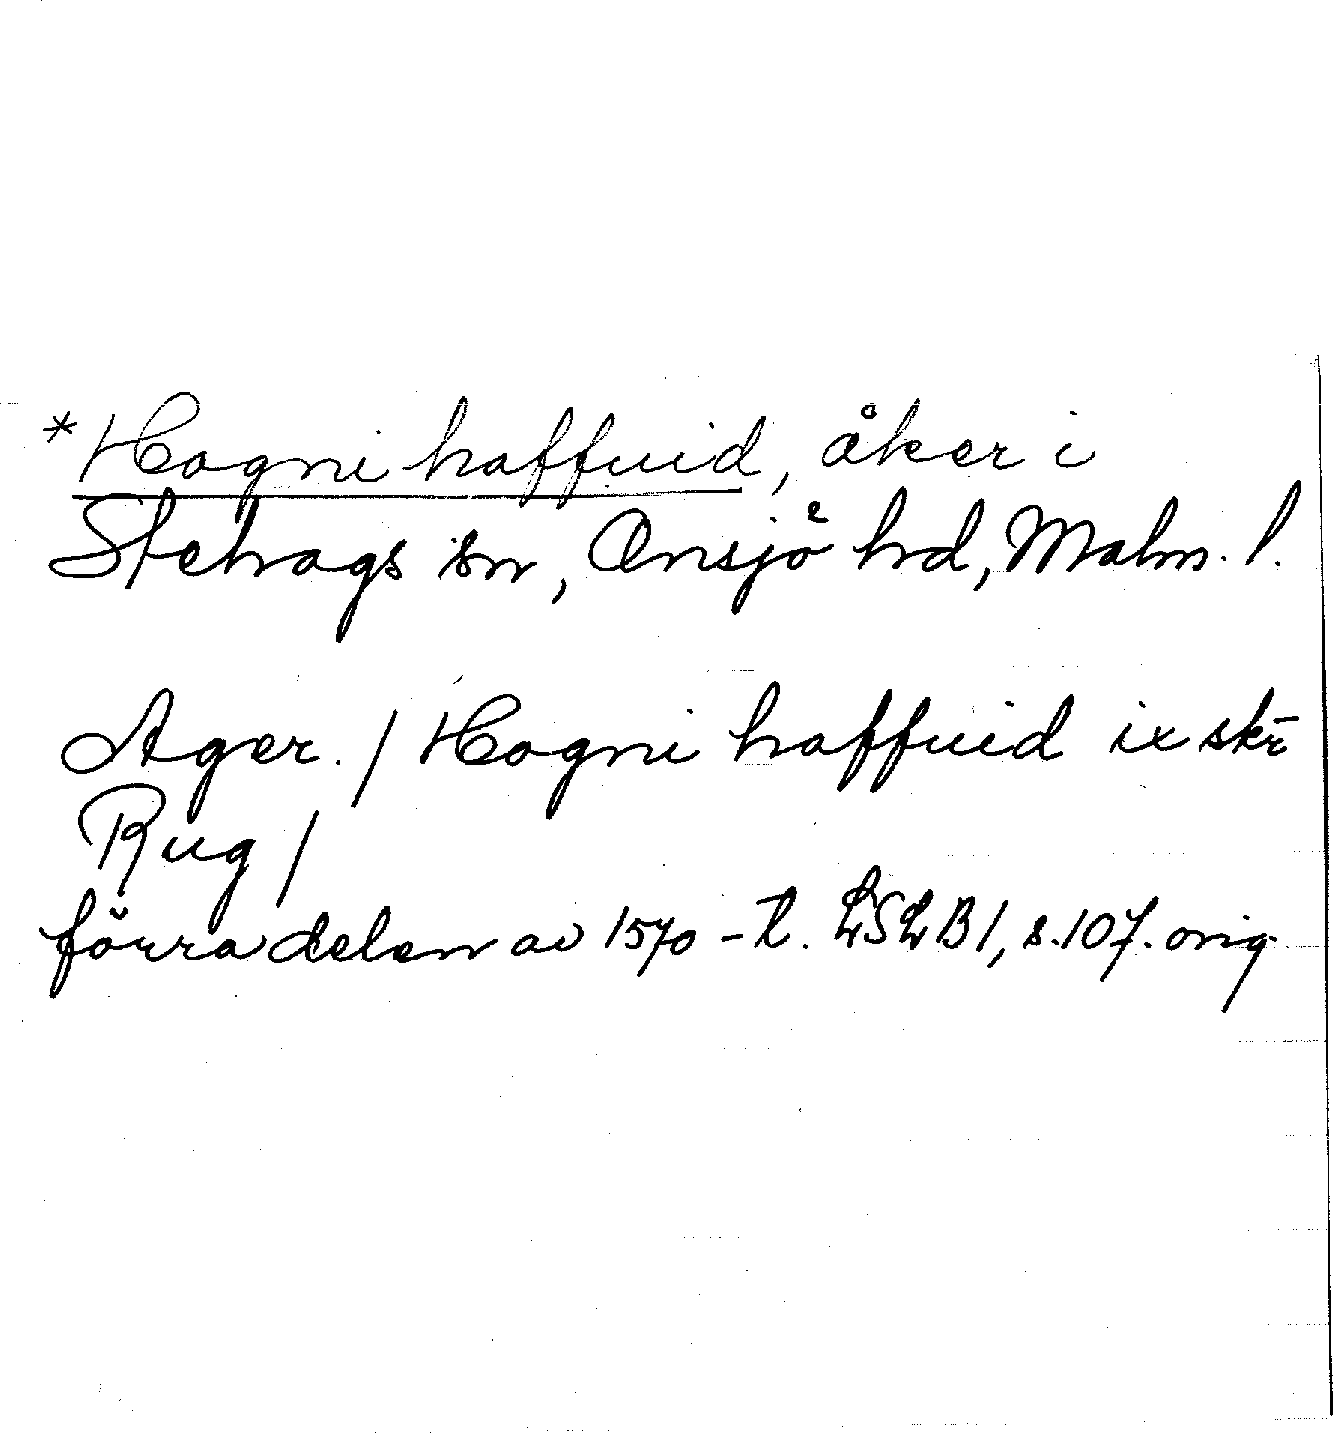 *Hogni haffuid, åker i
Stehags sn, Onsjö hd, Malm. l.
Ager. / Hogni haffuid ix skr̄
Rug /
förra delen av 1570-t. LSLB 1, s. 107. orig.